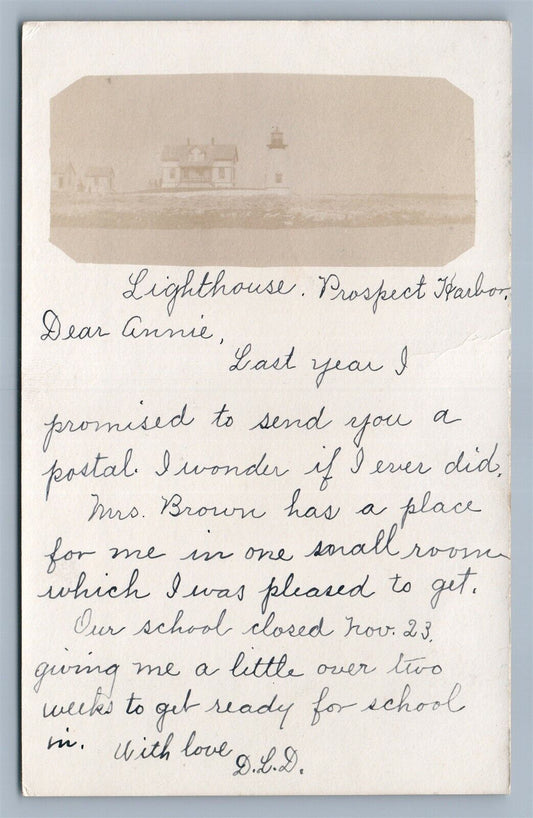 Lighthouse. Prospect Harbor.
Dear Annie,
Last year I
promised to send you a
postal. I wonder if I ever did.
Mrs. Brown has a place
for me in one small room
which I was pleased to get.
Our school closed Nov. 23.
giving me a little over two
weeks to get ready for school
in. With love
D.L.D.